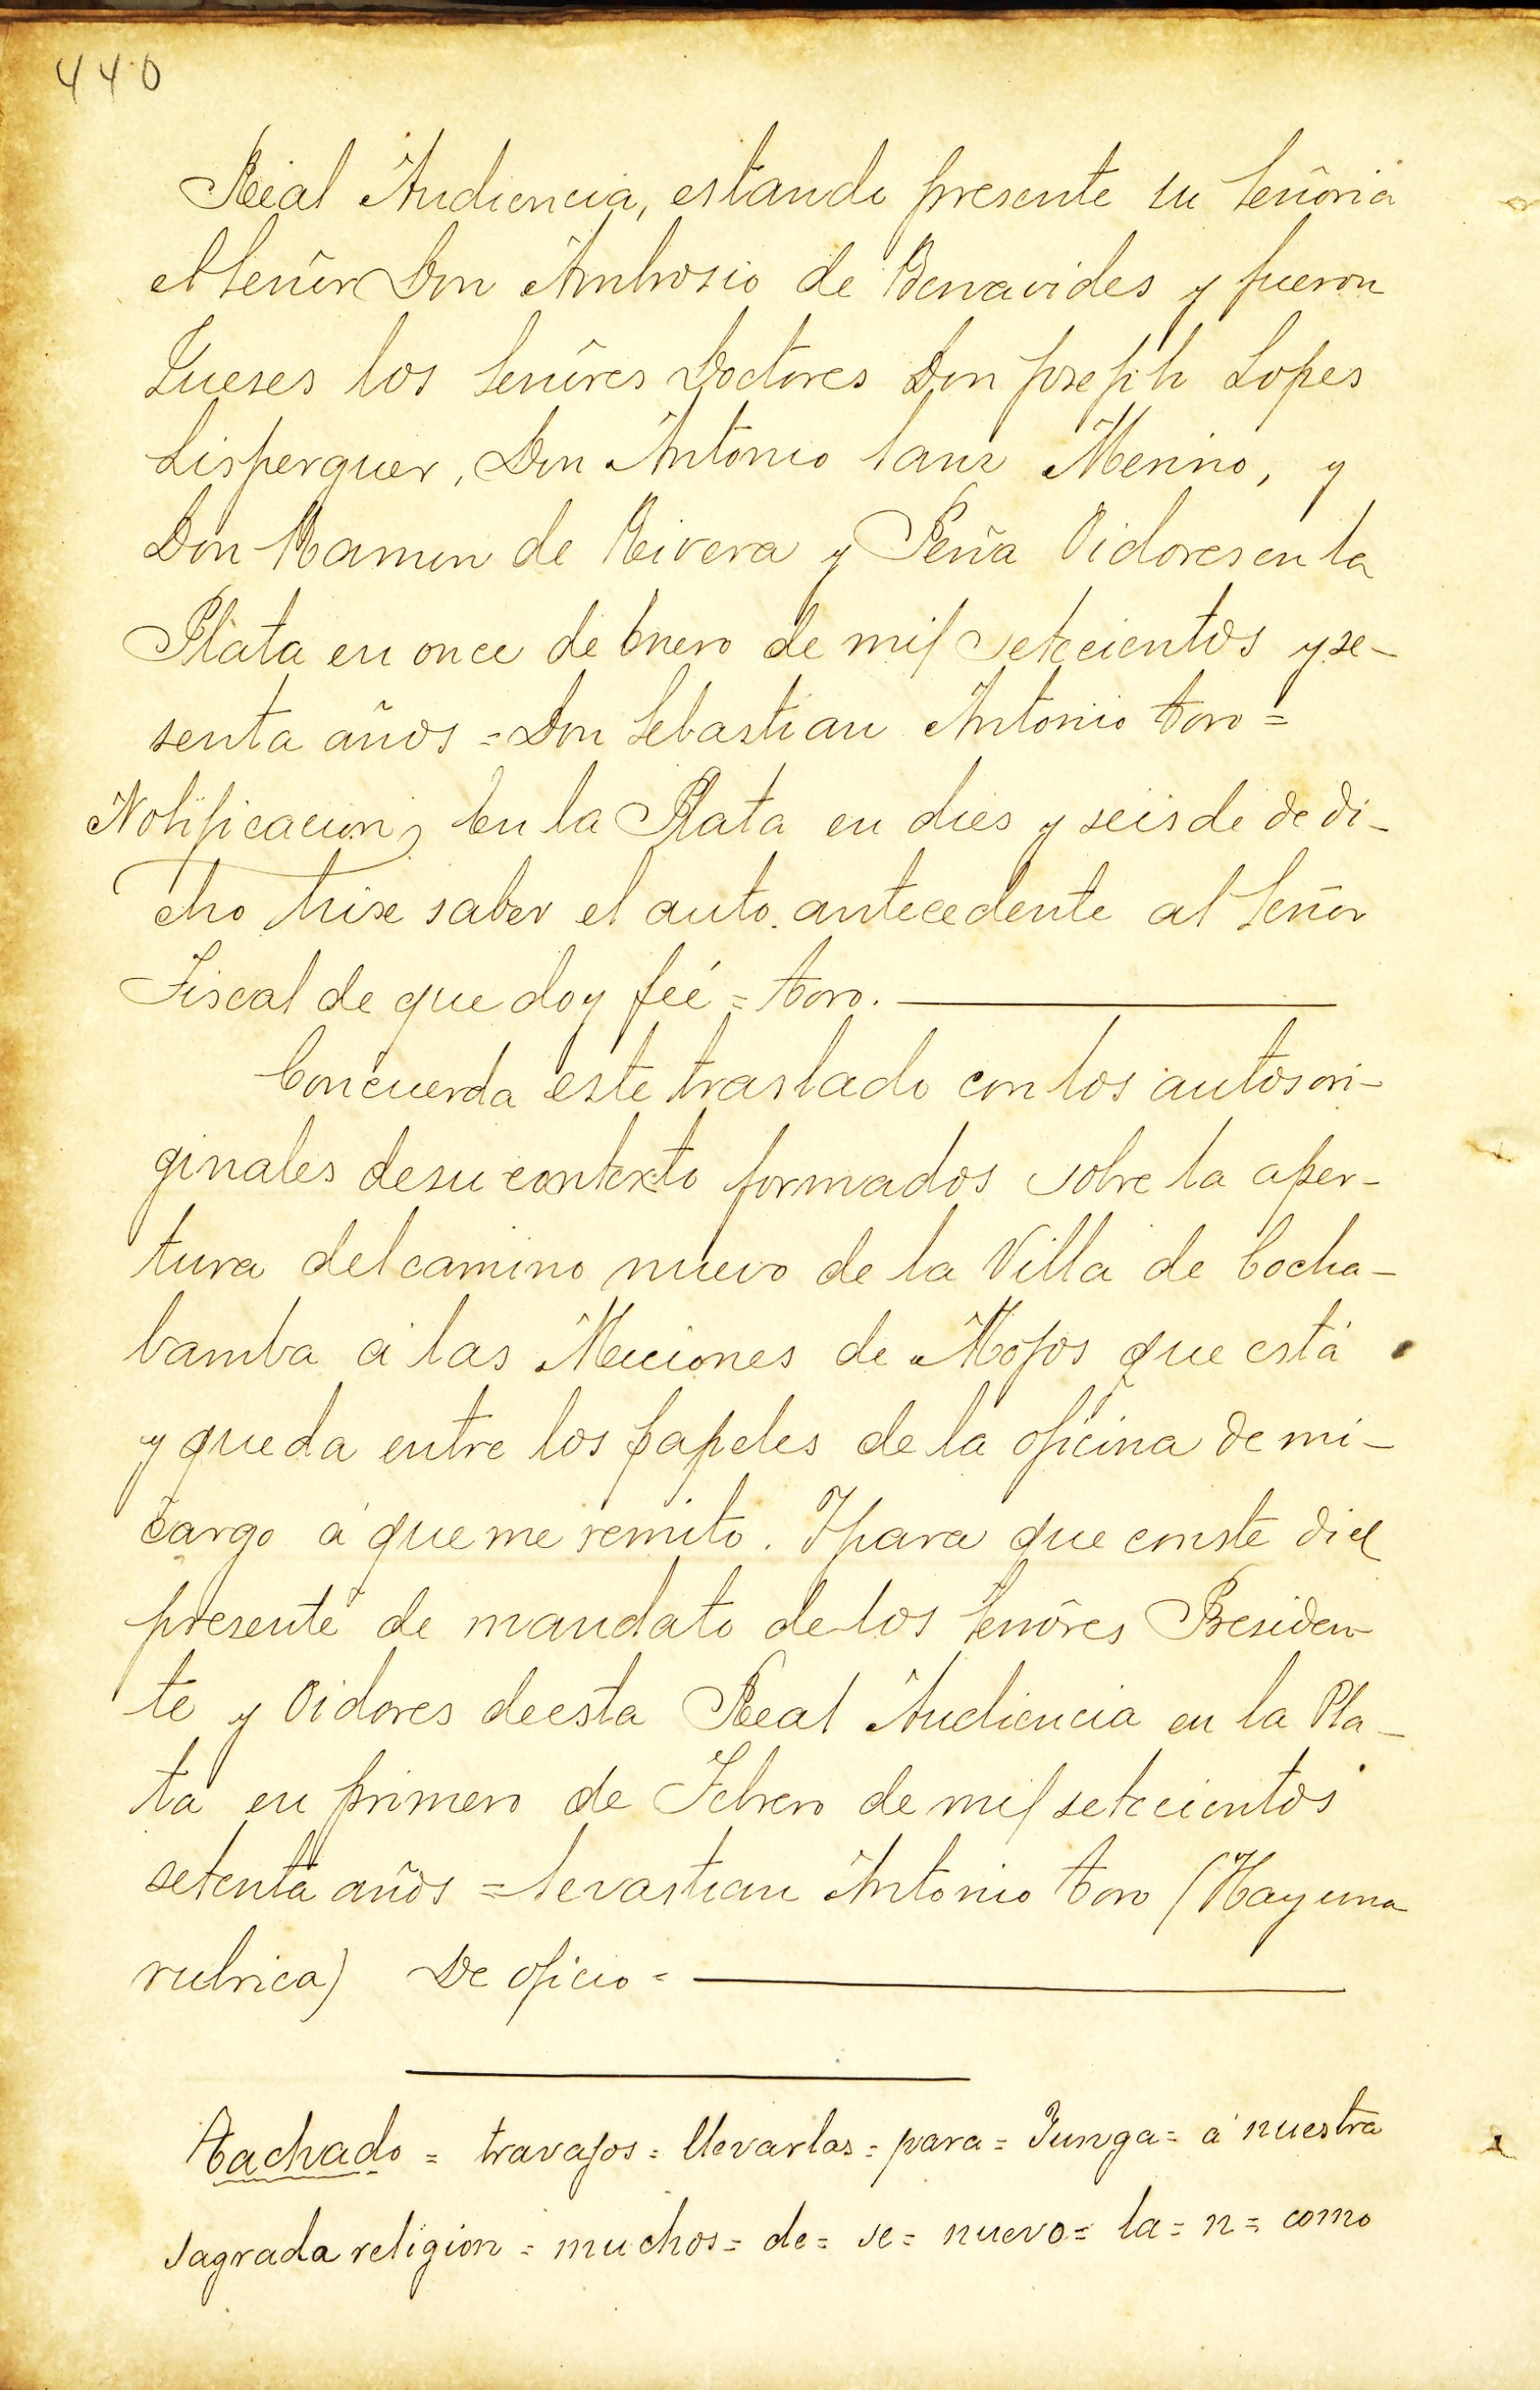 440
Real Audiencia, estando presente su Señoria
el Señor Don Ambrosio de Benavides y fueron
Jueses los Señores Doctores Don Joseph Lopes
Lisperguer, Don Antonio Sanz Merino, y
Don Ramon de Rivera y Peña Oidores en la
Plata en once de Enero de mil setecientos y se-
senta años = Don Sebastian Antonio Toro =
Notificacion, En la Plata en dies y seis de de di-
cho hise saber el auto antecedente al Señor
Fiscal de que doy feé = Toro.
Concuerda este traslado con los autos ori-
ginales de su contexto formados sobre la aper-
tura del camino nuevo de la Villa de Cocha-
bamba á las Meciones de Mojos que está
y queda entre los papeles de la oficina de mi-
cargo á que me remito. Y para que conste di el
presente de mandato de los Señores Presiden-
te y Oidores de esta Real Audiencia en la Pla-
ta en primero de Febrero de mil setecientos
setenta años = Sevastian Antonio Toro (Hay una
rubrica) De oficio =
Tachado = travajos = llevarlas = para = Yunga = á nuestra
sagrada religion = muchos = de = se = nuevo = la = n = como